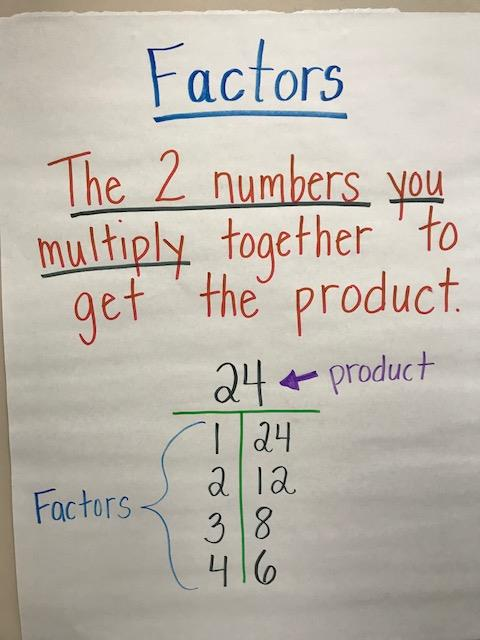 Factors
The 2 numbers you
multiply together to
get the product.
24 product
1 24
2 12
Factors
3 8
4 6